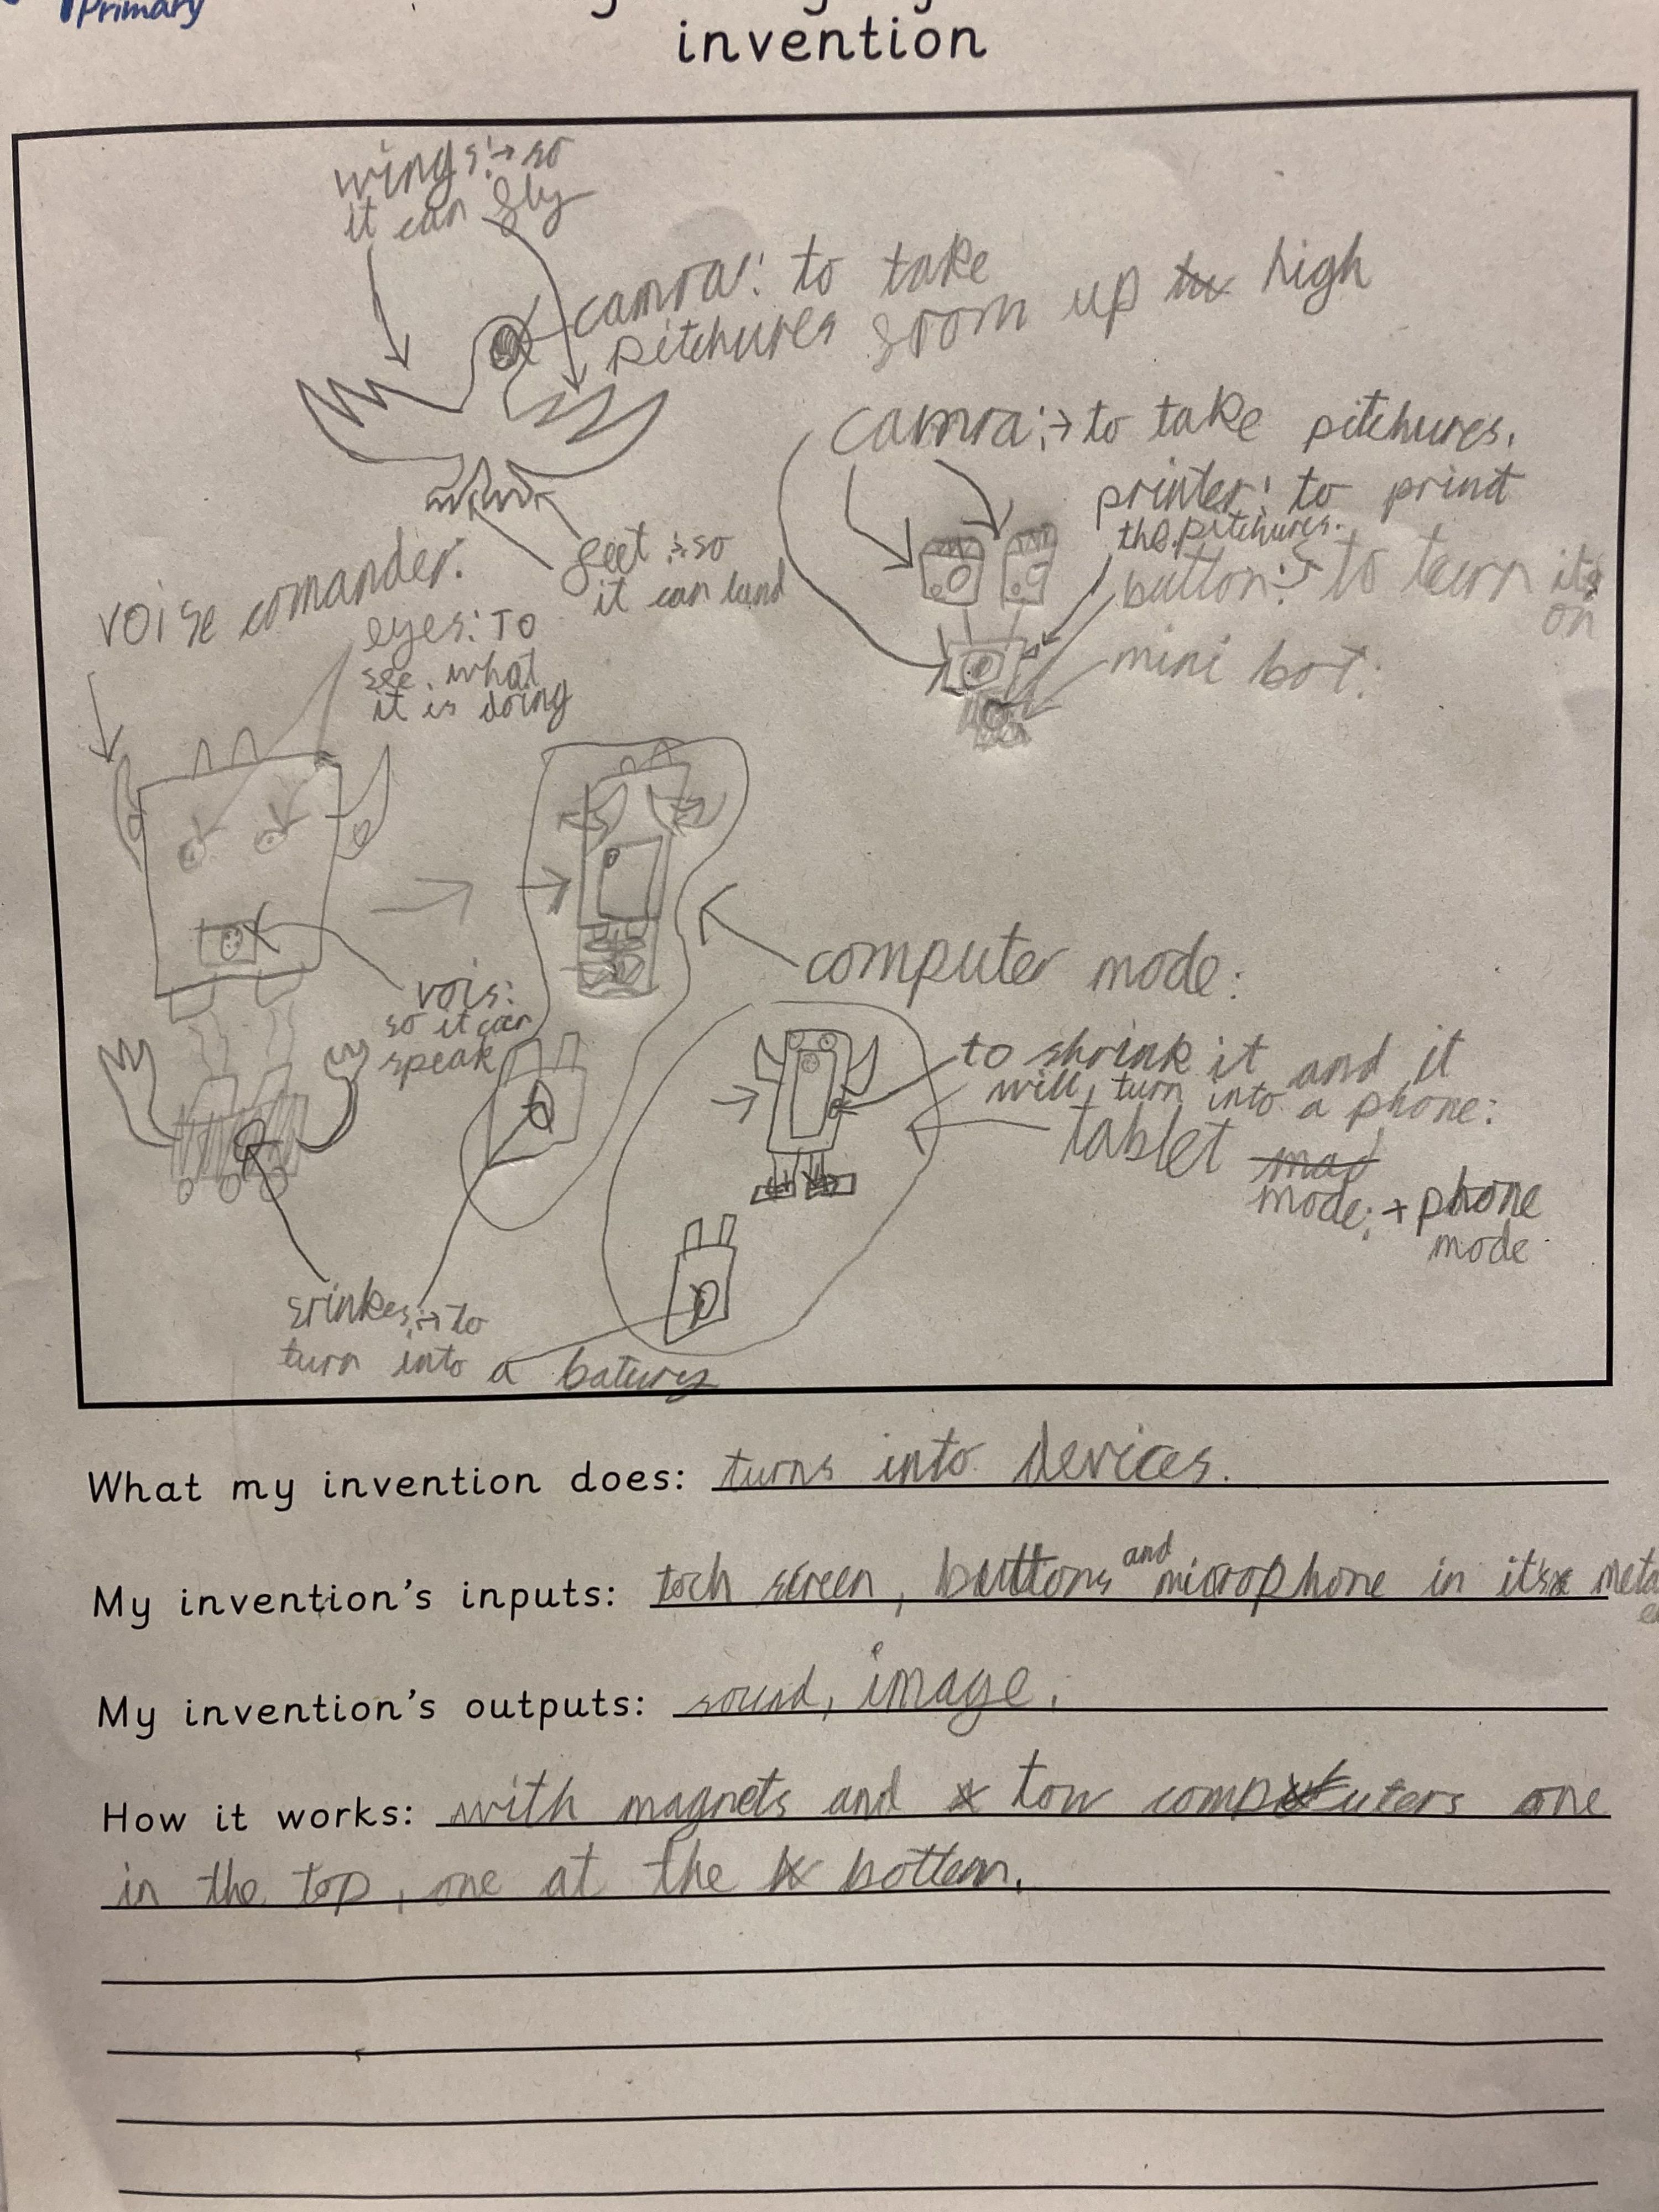 Primary
invention
wings:→ so
it can fly
camra: to take
pitchures from up high
camra:→ to take pitchures.
printer: to print
the pitchures.
button:→ to turn it
on
mini bot:
feet :→ so
it can land
voise comander:
eyes: To
see what
it is doing
vois:
so it can
speak
computer mode:
to shrink it and it
will turn into a phone:
tablet
mode: + phone
mode
srinkes:→ to
turn into a batury
What my invention does: turns into devices.
My invention's inputs: toch screen, buttons and microphone in it's
My invention's outputs: sound, image.
How it works: with magnets and tow computers one
in the top, one at the bottem.